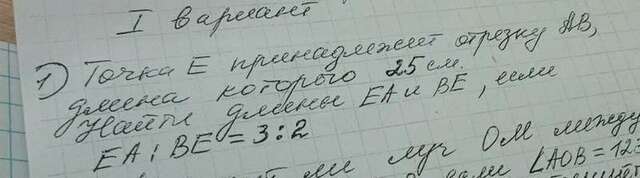 I вариант
1) Точка E принадлежит отрезку AB,
длина которого 25 см.
Найти длины EA и BE, если
EA : BE = 3 : 2
ли луч OM между
∠AOB = 12